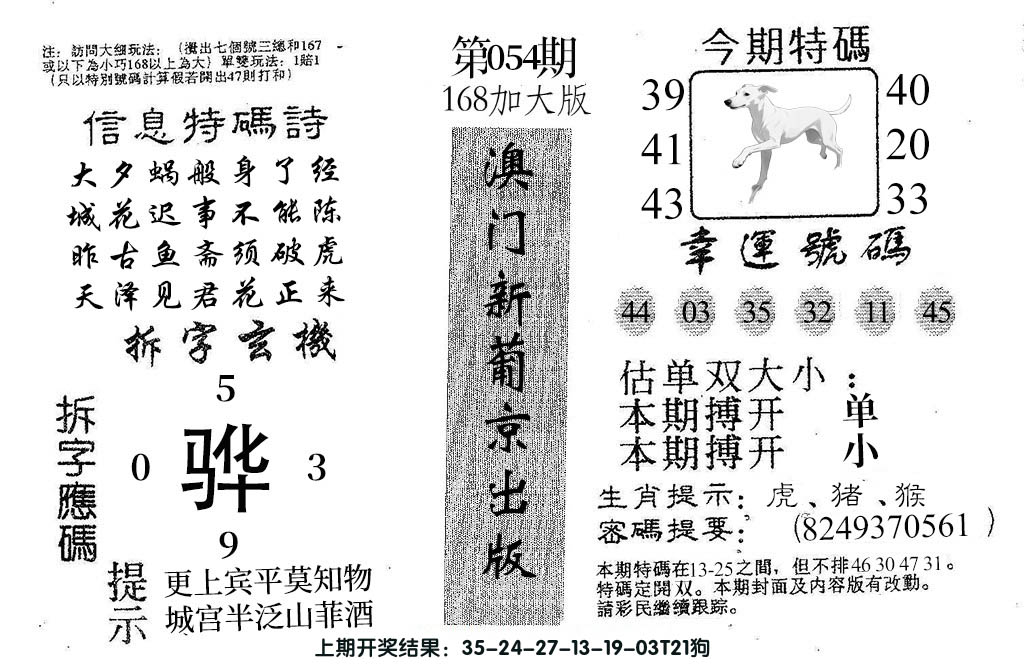 注：訪問大細玩法：（攪出七個號三總和167
或以下為小巧168以上為大）單雙玩法：1賠1
（只以特別號碼計算假若開出47則打和）
信息特碼詩
大夕蝸般身了经
城花迟事不能陈
昨古鱼斋须破虎
天泽见君花正来
拆字玄機
拆字應碼
5
0 骅 3
9
提示
更上宾平莫知物
城宫半泛山菲酒
第054期
168加大版
澳门新葡京出版
今期特碼
39 40
41 20
43 33
幸運號碼
44 03 35 32 11 45
估单双大小：
本期搏开 单
本期搏开 小
生肖提示：虎、猪、猴
密碼提要：（8249370561）
本期特碼在13-25之間，但不排46 30 47 31。
特碼定開双。本期封面及内容版有改動。
請彩民繼續跟踪。
上期开奖结果：35-24-27-13-19-03T21狗